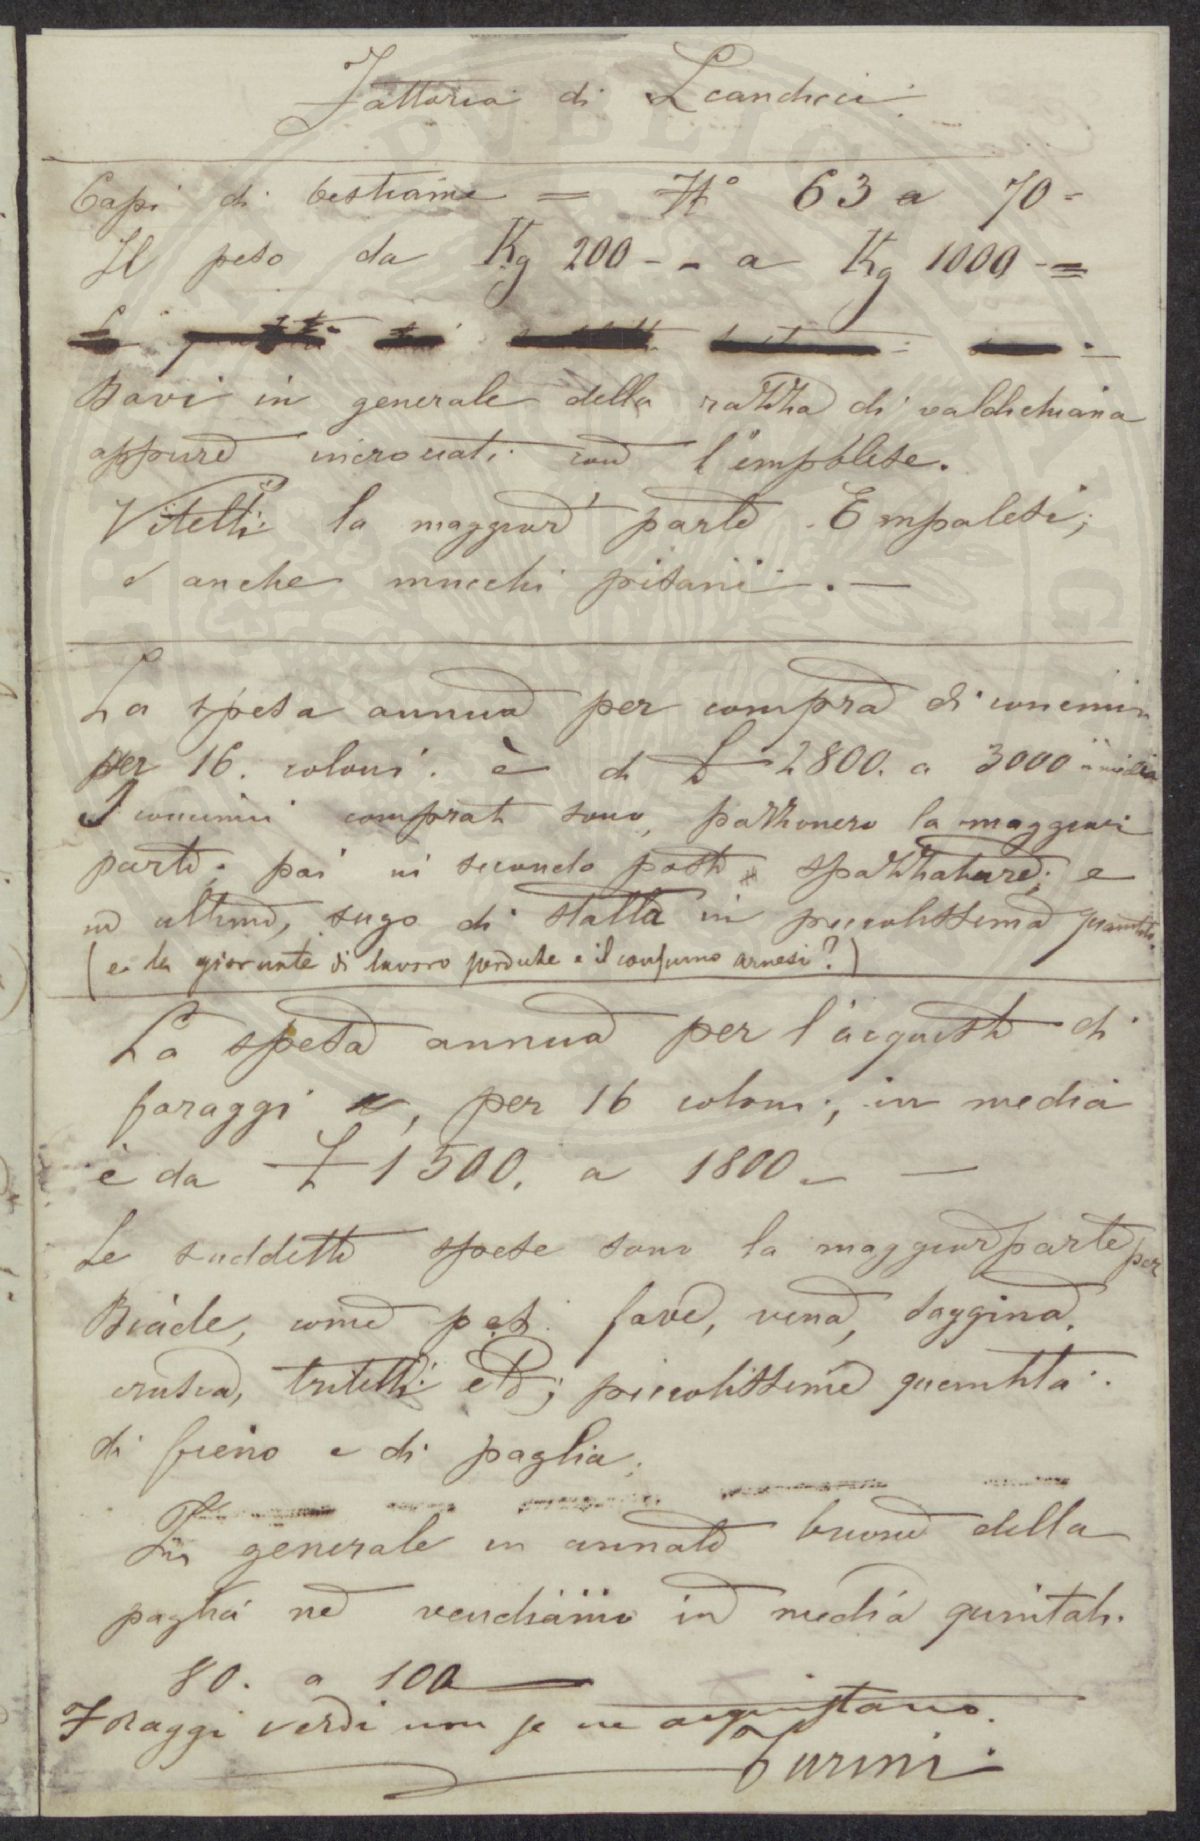 Fattoria di Scandicci
Capi di bestiame = N° 63 a 70 -
Il peso da Kg 200 - - a Kg 1000 - =
Bovi in generale della razza di valdichiana
oppure incrociati con l'empolese.
Vitelli la maggior parte Empolesi;
e anche mucchi pisani . —
La spesa annua per compra di concimi
per 16. coloni. è di £ 2800. a 3000 in media
I concimi comprati sono, pozzonero la maggiori
parte. poi in secondo posto spazzature; e
in ultimo, sugo di stalla in piccolissima quantità.
(e le giornate di lavoro perdute e il consumo arnesi?)
La spesa annua per l'acquisto di
foraggi , per 16 coloni, in media
è da £ 1500. a 1800 - —
Le suddette spese sono la maggior parte per
Biade, come p. es. fave, vena, saggina,
crusca, tritelli ; piccolissime quantità
di fieno e di paglia.
In generale in annate buone della
paglia ne vendiamo in media quintali.
80. a 100 —
Foraggi verdi non se ne acquistano.
Turini.